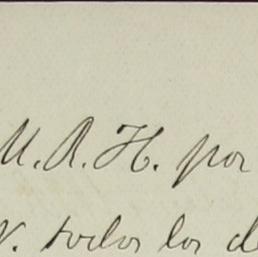 M. R. H. por
V. todos los d